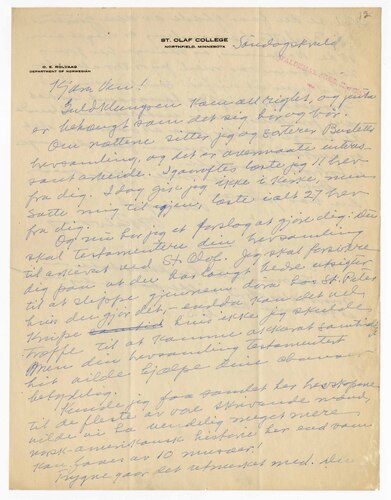 12
ST. OLAF COLLEGE
NORTHFIELD, MINNESOTA
Søndagskveld
O. E. ROLVAAG
DEPARTMENT OF NORWEGIAN
Kjære Ven!
Guldklumpen kom all right, og jenta
er behaugt som det sig hør og bør.
Om nættene sitter jeg og
samling, og det er
sant arbeide. Igaaraftes læste jeg 11 brev
fra dig. Idag gik jeg ikke i kirke, men
satte mig til igjen, læste ialt 27 brev
fra dig.
Og nu har jeg et forslag at gjøre dig: Du
skal testamentere din brevsamling
til arkivet ved St. Olaf. Jeg skal forsikre
dig paa at du har langt bedre utsigter
til at slippe gjennem dora hos St. Peter
hvis du gjør det, endda kan det vel
knipe hvis ikke jeg skulde
træffe til at komme akkurat samtidig
Men din brevsamling testamentert
hit vilde hjælpe dine chancer
betydelig.
Kunde jeg faa samlet her brevskapene
til de fleste av vore skrivende mænd,
vilde vi ha uendelig meget mere
norsk-amerikansk historie her end som
kan laves av 10 murder!
Trygve gaar det utmerket med. Du